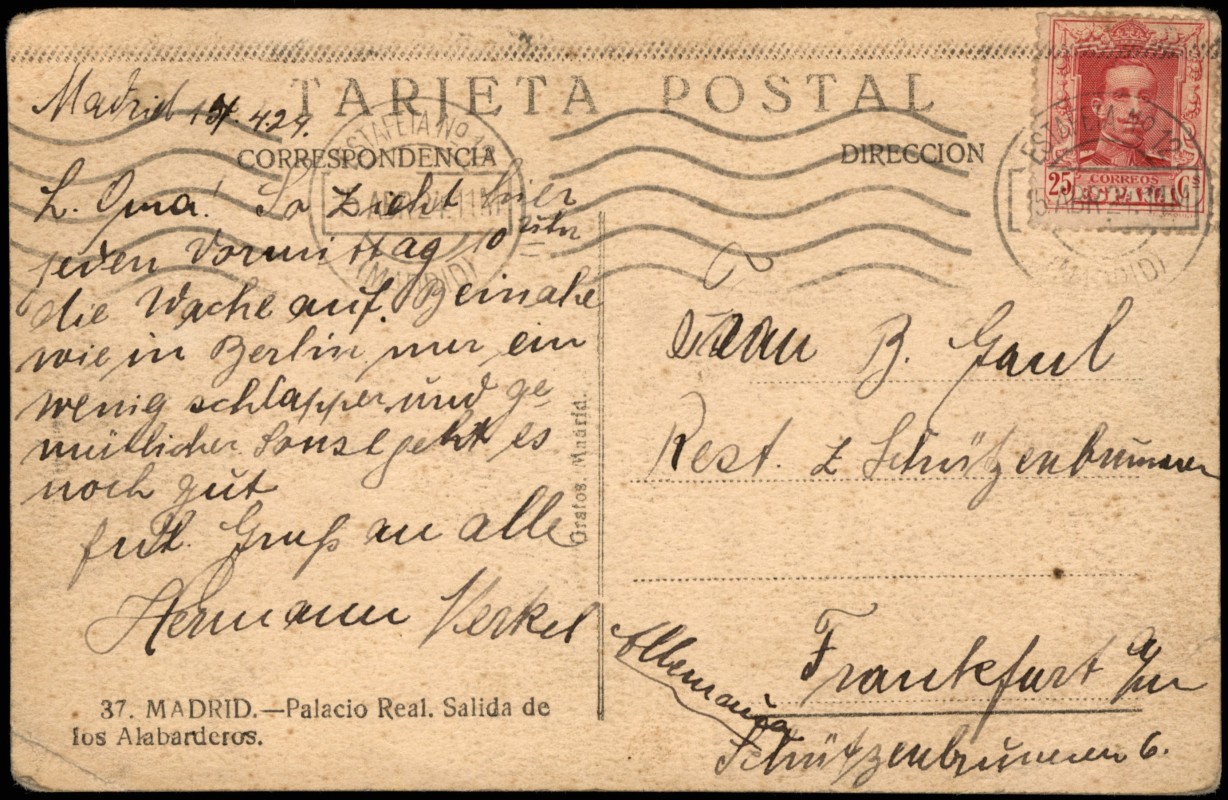 TARJETA POSTAL
CORRESPONDENCIA
DIRECCION
Madrid 4.24.
L. Oma! So zieht hier
jeden Vormittag 10 Uhr
die Wache auf. Beinahe
wie in Berlin, nur ein
wenig schlapper und ge-
mütlicher. Sonst geht es
noch gut
Gruß an alle
Hermann
37. MADRID.—Palacio Real. Salida de
los Alabarderos.
Grafos. Madrid.
ESTAFETA Nº
ABR 11M
(MADRID)
CORREOS
ESPAÑA
25 Cs
ESTAFETA Nº
15 ABR
(MADRID)
Frau B. Gaul
Rest. z Schützenbrunnen
Frankfurt a/m
Allemania
Schützenbrunnen 6.